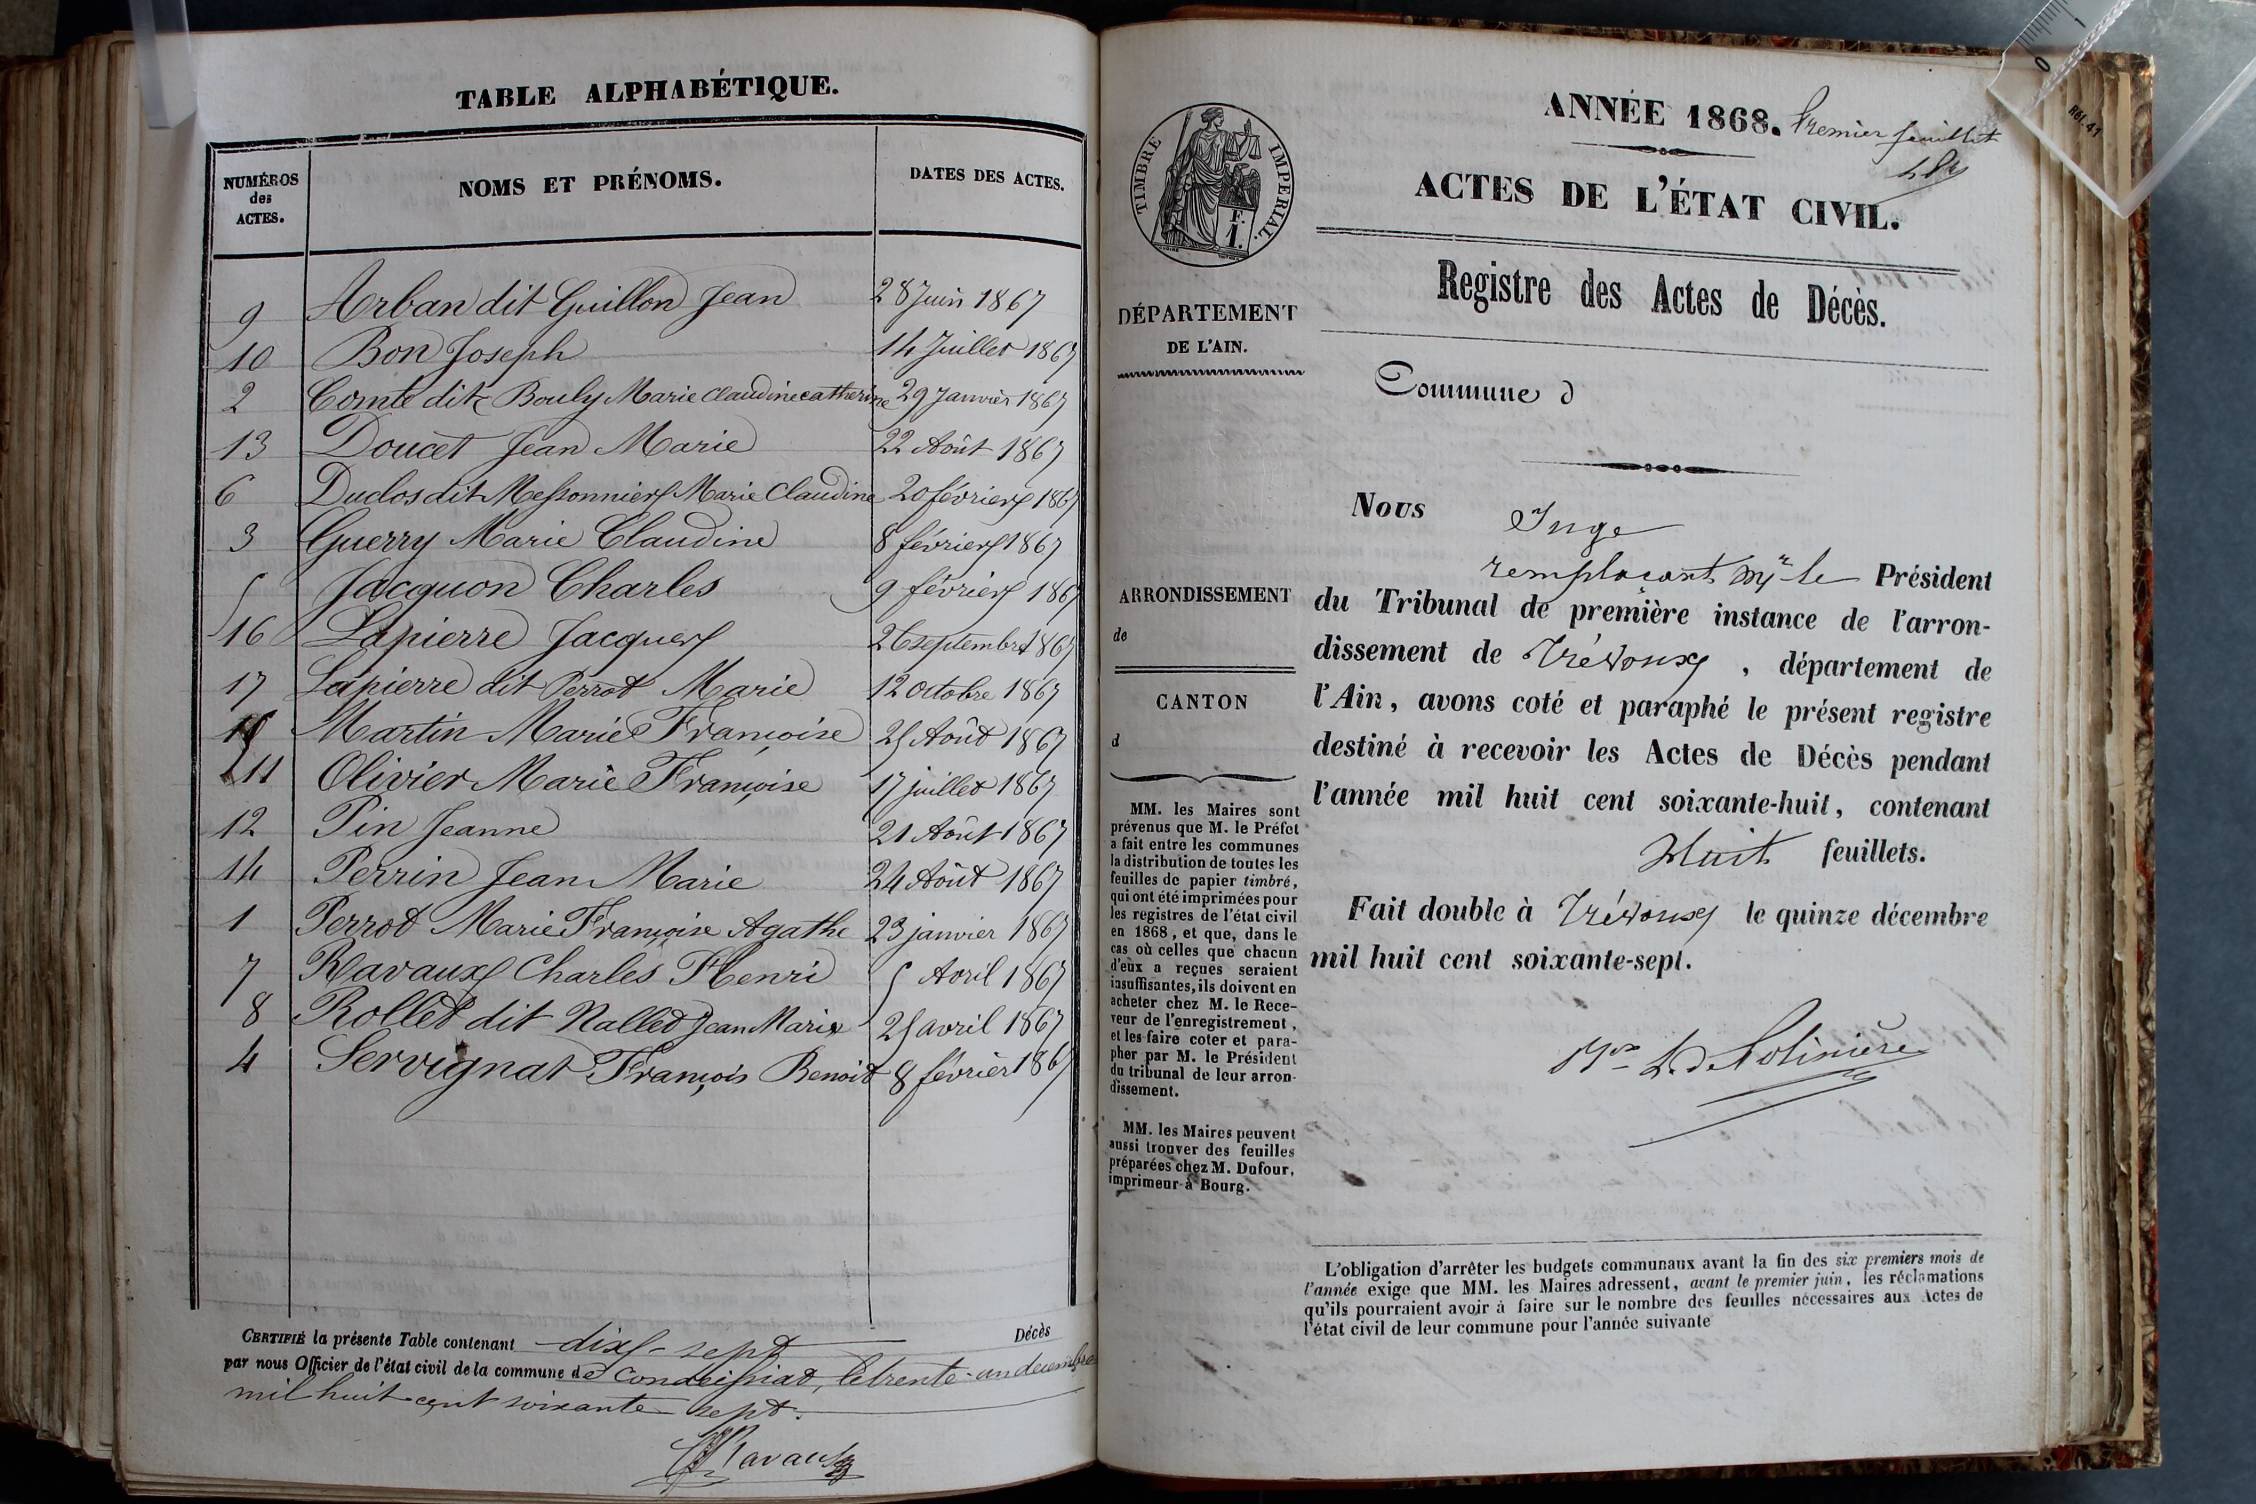 TABLE ALPHABÉTIQUE.
NUMÉROS des ACTES. NOMS ET PRÉNOMS. DATES DES ACTES.
9 Arban dit Guillon Jean 28 Juin 1867
10 Bon Joseph 14 Juillet 1867
2 Comte dit Bouly Marie Claudine catherine 29 Janvier 1867
13 Doucet Jean Marie 22 Août 1867
6 Duclos dit Messonnier Marie Claudine 20 février 1867
3 Guerry Marie Claudine 8 février 1867
5 Jacquon Charles 9 février 1867
16 Lapierre Jacques 26 septembre 1867
17 Lapierre dit Perrot Marie 12 octobre 1867
15 Martin Marie Françoise 25 Août 1867
11 Olivier Marie Françoise 17 juillet 1867
12 Pin Jeanne 21 Août 1867
14 Perrin Jean Marie 24 Août 1867
1 Perrot Marie Françoise Agathe 23 janvier 1867
7 Ravaux Charles Henri 5 Avril 1867
8 Rollet dit Nallet Jean Marie 25 avril 1867
4 Servignat François Benoit 8 février 1867
CERTIFIÉ la présente Table contenant dix-sept Décès
par nous Officier de l'état civil de la commune de Condeissiat, le trente-un decembre
mil huit cent soixante sept.
Ravaux
TIMBRE IMPERIAL.
F. I.
DÉPARTEMENT
DE L'AIN.
ARRONDISSEMENT
de
CANTON
d
MM. les Maires sont
prévenus que M. le Préfet
a fait entre les communes
la distribution de toutes les
feuilles de papier timbré,
qui ont été imprimées pour
les registres de l'état civil
en 1868, et que, dans le
cas où celles que chacun
d'eux a reçues seraient
insuffisantes, ils doivent en
acheter chez M. le Rece-
veur de l'enregistrement,
et les faire coter et para-
pher par M. le Président
du tribunal de leur arron-
dissement.
MM. les Maires peuvent
aussi trouver des feuilles
préparées chez M. Dufour,
imprimeur à Bourg.
ANNÉE 1868. Premier feuillet
ACTES DE L'ÉTAT CIVIL.
Registre des Actes de Décès.
Commune d
Nous Juge
remplaçant Mr le Président
du Tribunal de première instance de l'arron-
dissement de Trévoux, département de
l'Ain, avons coté et paraphé le présent registre
destiné à recevoir les Actes de Décès pendant
l'année mil huit cent soixante-huit, contenant
Huit feuillets.
Fait double à Trévoux le quinze décembre
mil huit cent soixante-sept.
L'obligation d'arrêter les budgets communaux avant la fin des six premiers mois de
l'année exige que MM. les Maires adressent, avant le premier juin, les réclamations
qu'ils pourraient avoir à faire sur le nombre des feuilles nécessaires aux Actes de
l'état civil de leur commune pour l'année suivante
0 1